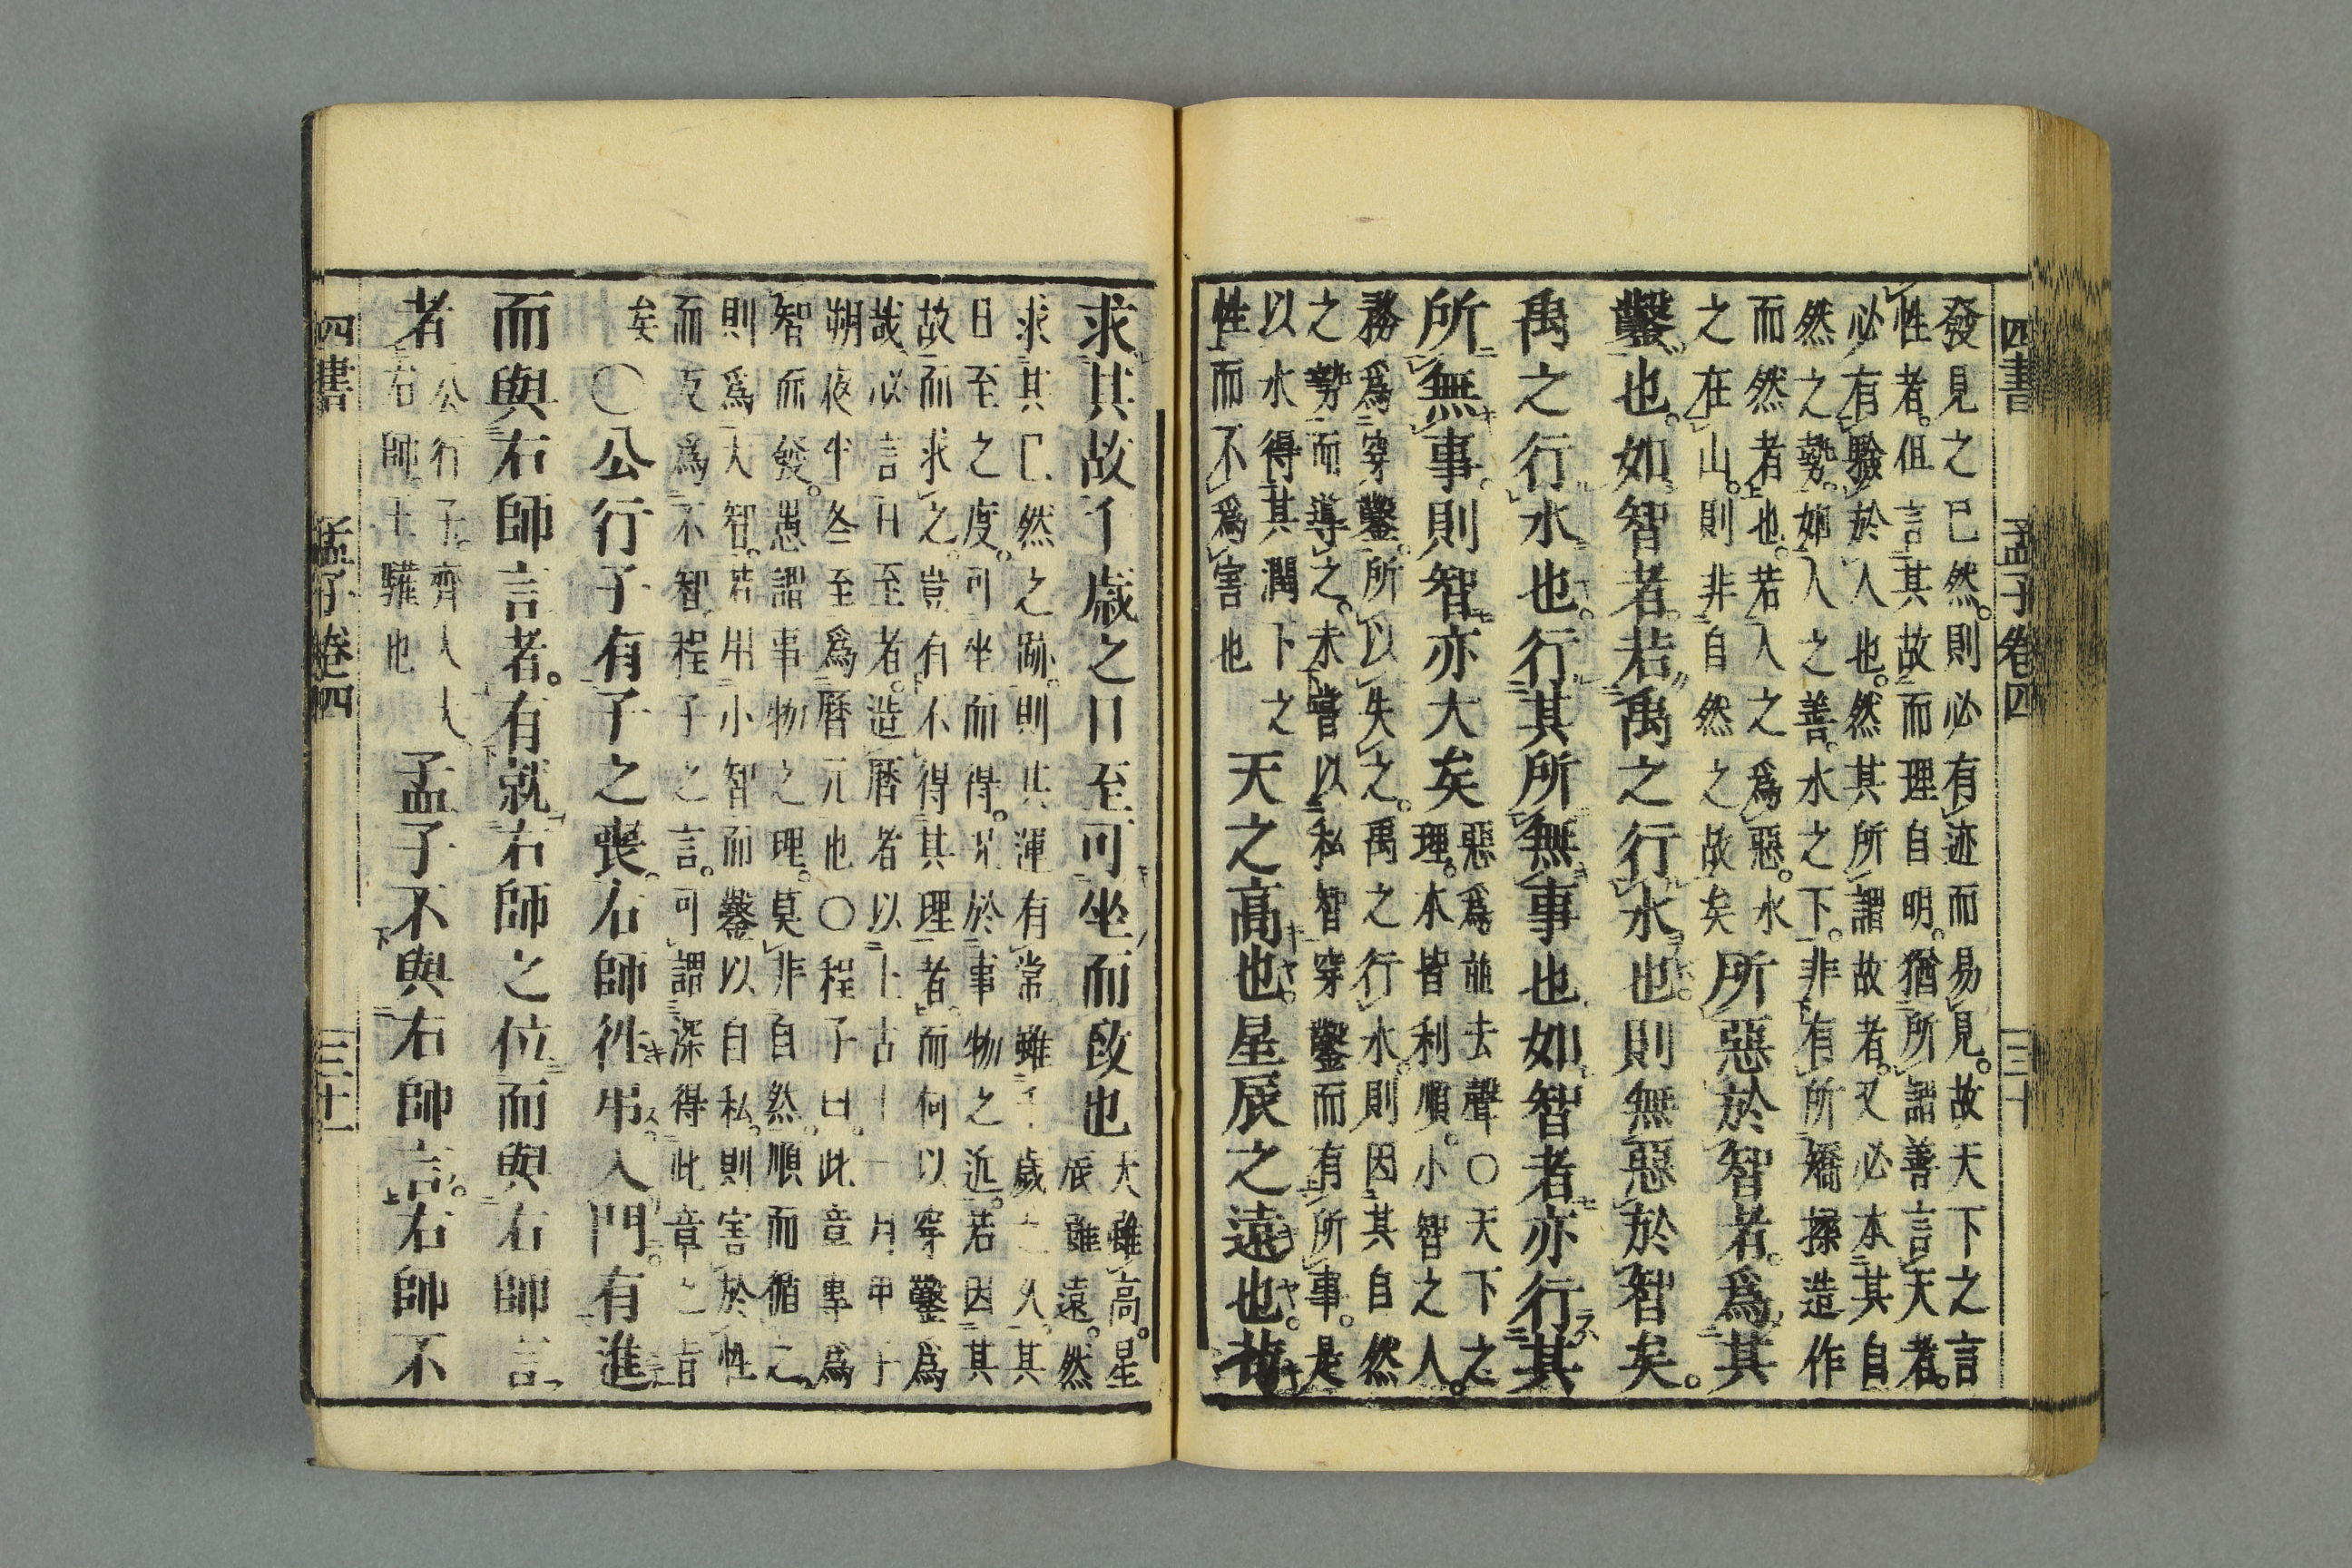 四書 孟子卷四 三十
發見之已然。則必有迹而易見。故天下之言
性者。但言其故而理自明。猶所謂善言天者。
必有驗於人也。然其所謂故者。又必本其自
然之勢。如人之善。水之下。非有所矯揉造作
而然者也。若人之爲惡。水
之在山。則非自然之故矣
所惡於智者。爲其
鑿也。如智者。若禹之行水也。則無惡於智矣。
禹之行水也。行其所無事也如智者亦行其
所無事。則智亦大矣
惡爲並去聲○天下之
理。本皆利順。小智之人。
務爲穿鑿。所以失之。禹之行水。則因其自然
之勢而導之。未嘗以私智穿鑿而有所事。是
以水得其潤下之
性而不爲害也
天之高也。星辰之遠也。苟
求其故千歲之日至可坐而致也
天雖高。星
辰雖遠。然
求其已然之跡。則其運有常。雖千歲之久。其
日至之度。可坐而得。况於事物之近。若因其
故而求之。豈有不得其理者。而何以穿鑿爲
哉必言日至者。造曆者以上古十一月甲子
朔夜半冬至爲曆元也○程子曰。此章專爲
智而發。愚謂事物之理。莫非自然。順而循之。
則爲大智。若用小智而鑿以自私。則害於性
而反爲不智。程子之言。可謂深得此章之旨
矣
○公行子有子之喪。右師徃弔。入門。有進
而與右師言者。有就右師之位而與右師言
者
公行子。齊人大
右師王驩也
孟子不與右師言。右師不
四書 孟子卷四 三十一